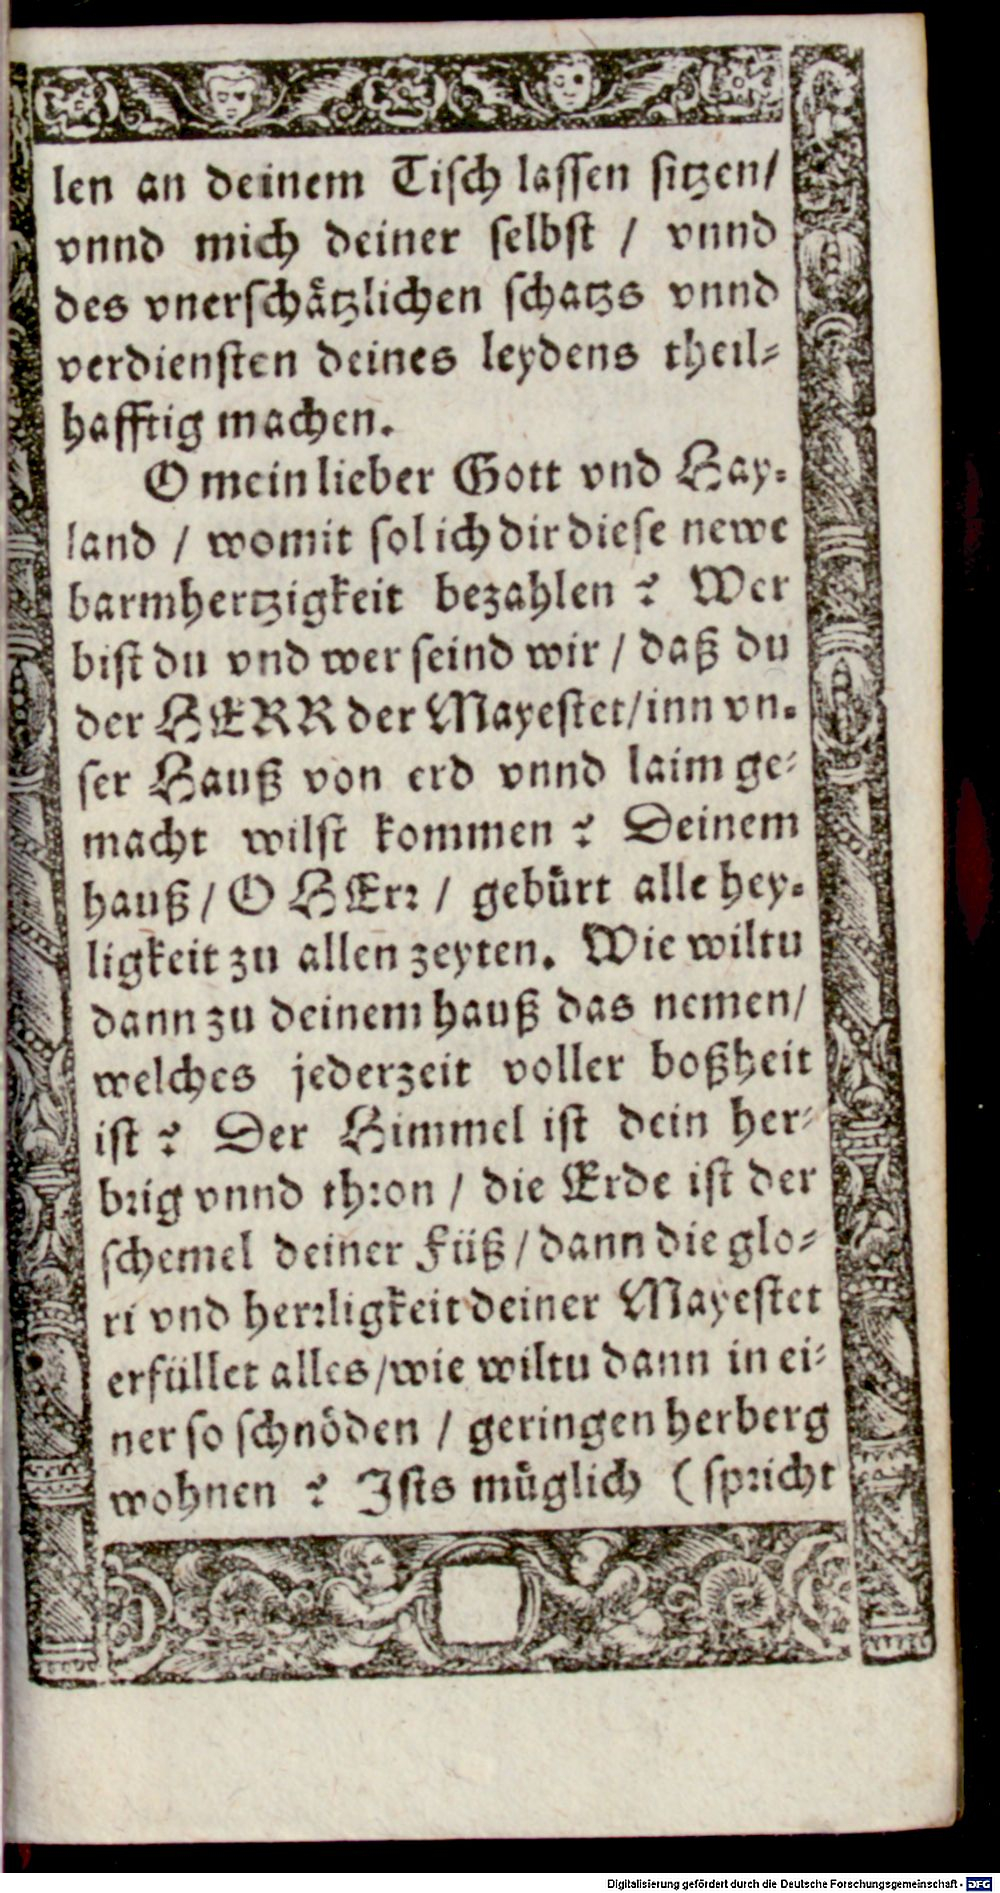 len an deinem Tisch lassen sitzen/
vnnd mich deiner selbst / vnnd
des vnerschåtzlichen schatzs vnnd
verdiensten deines leydens theil⸗
hafftig machen.
O mein lieber Gott vnd Hay⸗
land / womit sol ich dir diese newe
barmhertzigkeit bezahlen? Wer
bist du vnd wer seind wir / daß du
der HERR der Mayestet/inn vn⸗
ser Hauß von erd vnnd laim ge⸗
macht wilst kommen? Deinem
hauß / O HErr / gebůrt alle hey⸗
ligkeit zu allen zeyten. Wie wiltu
dann zu deinem hauß das nemen/
welches jederzeit voller boßheit
ist? Der Himmel ist dein her⸗
brig vnnd thron / die Erde ist der
schemel deiner Füß / dann die glo⸗
ri vnd herrligkeit deiner Mayestet
erfüllet alles/wie wiltu dann in ei⸗
ner so schnöden / geringen herberg
wohnen? Ists müglich (spricht
Digitalisierung gefördert durch die Deutsche Forschungsgemeinschaft - DFG